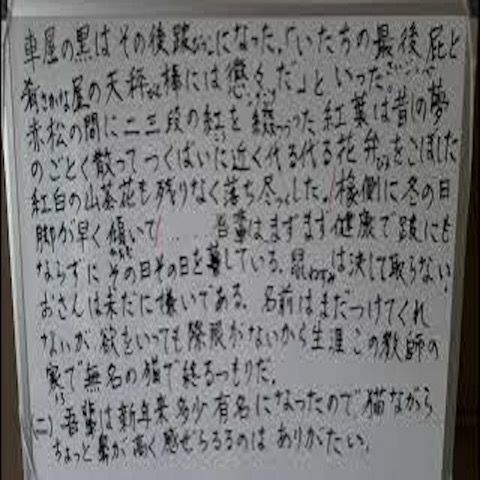 車屋の黒はその後跛びっこになった。「いたちの最後屁と
肴さかな屋の天秤びん棒には懲々だ」といった。
赤松の間に二三段の紅を綴つづった紅葉は昔しの夢
のごとく散ってつくばいに近く代る代る花弁びらをこぼした
紅白の山茶花も残りなく落ち尽つくした。椽側に冬の日
脚が早く傾いて . . . . . 吾輩はまずます健康で跛にも
ならずにその日その日を暮している。鼠ねずみは決して取らない。
おさんは未だに嫌いである。名前はまだつけてくれ
ないが欲をいっても際限がないから生涯この教師の
家で無名の猫で終るつもりだ。
(二)吾輩は新年来多少有名になったので猫ながら
ちょっと鼻が高く感ぜらるるのはありがたい。